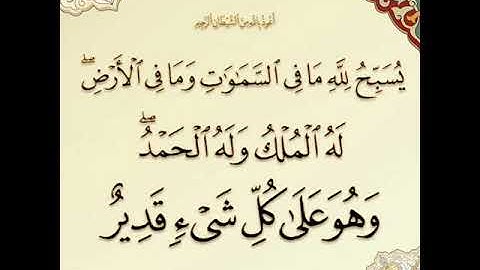 أعوذ بالله من الشيطان الرجيم
يُسَبِّحُ لِلَّهِ مَا فِى ٱلسَّمَـٰوَٰتِ وَمَا فِى ٱلْأَرْضِ ۖ
لَهُ ٱلْمُلْكُ وَلَهُ ٱلْحَمْدُ ۖ
وَهُوَ عَلَىٰ كُلِّ شَىْءٍ قَدِيرٌ